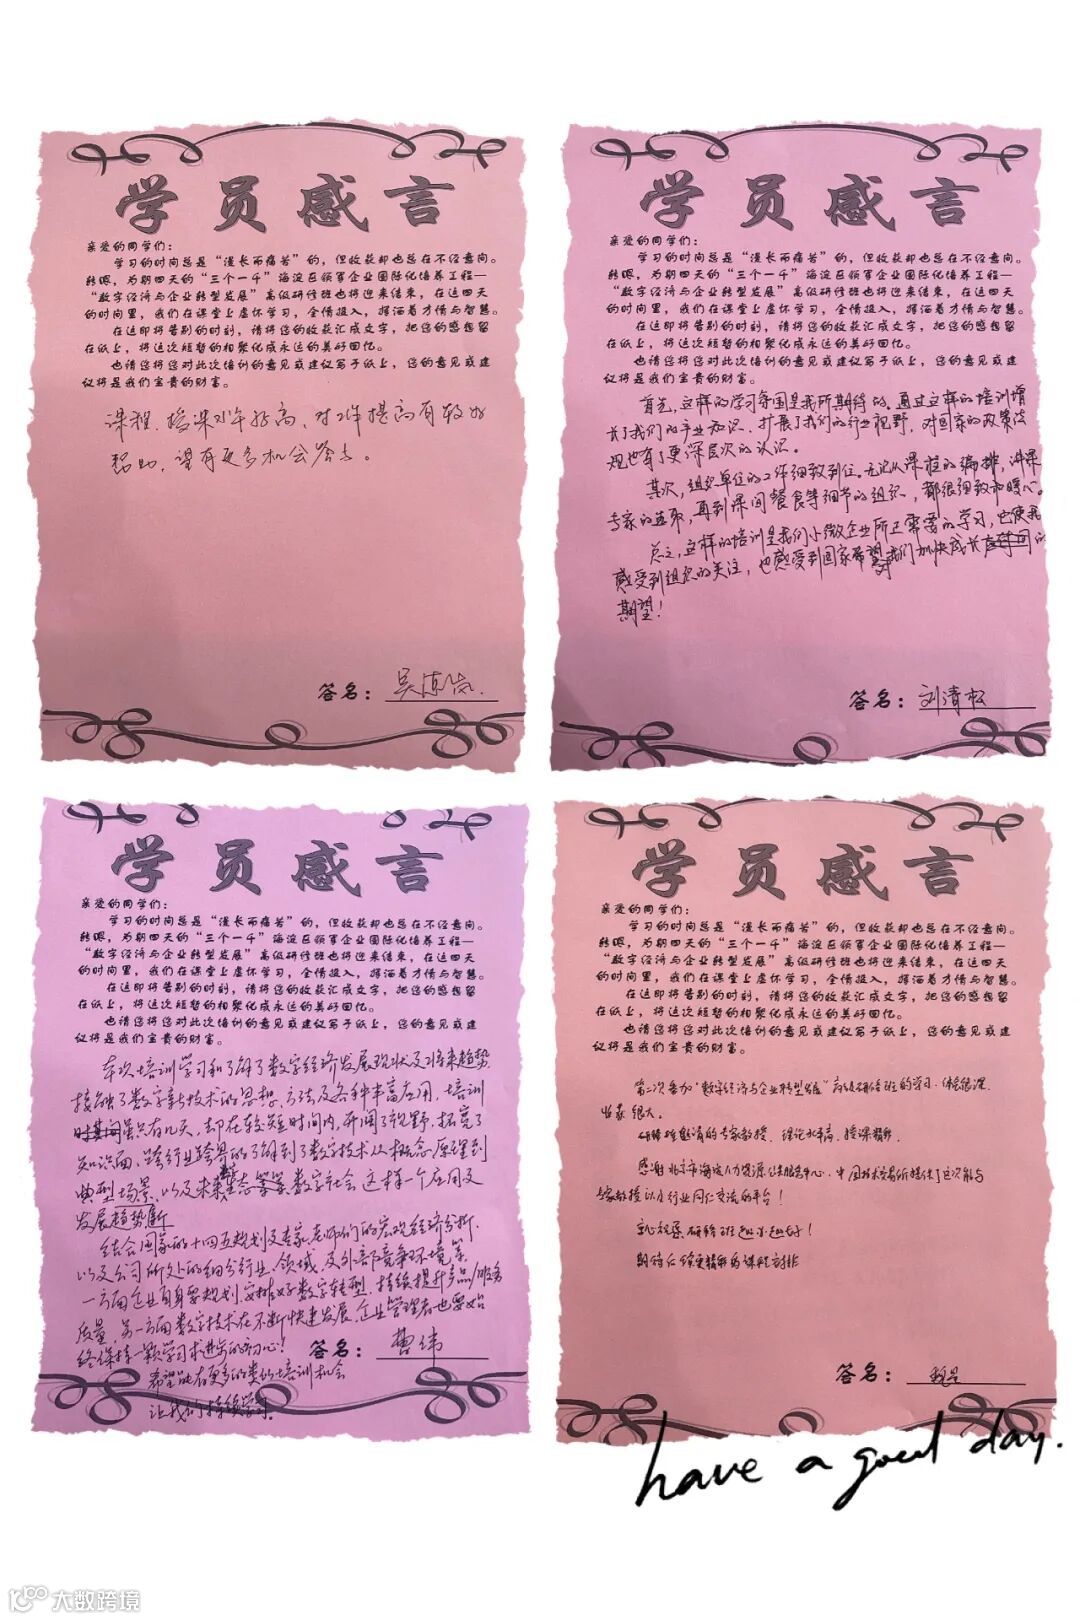 学员感言
亲爱的同学们：
学习的时间总是“漫长而痛苦”的，但收获却也总在不经意间。
转眼，为期四天的“三个一千”海淀区领军企业国际化培养工程—
“数字经济与企业转型发展”高级研修班也将迎来结束，在这四天
的时间里，我们在课堂上虚怀学习，全情投入，挥洒着才情与智慧。
在这即将告别的时刻，请将您的收获汇成文字，把您的感想留
在纸上，将这次短暂的相聚化成永远的美好回忆。
也请您将您对此次培训的意见或建议写于纸上，您的意见或建
议将是我们宝贵的财富。
课程、授课水平较高、对工作提高有较好
帮助，望有更多机会参与。
签名：
学员感言
亲爱的同学们：
学习的时间总是“漫长而痛苦”的，但收获却也总在不经意间。
转眼，为期四天的“三个一千”海淀区领军企业国际化培养工程—
“数字经济与企业转型发展”高级研修班也将迎来结束，在这四天
的时间里，我们在课堂上虚怀学习，全情投入，挥洒着才情与智慧。
在这即将告别的时刻，请将您的收获汇成文字，把您的感想留
在纸上，将这次短暂的相聚化成永远的美好回忆。
也请您将您对此次培训的意见或建议写于纸上，您的意见或建
议将是我们宝贵的财富。
首先，这样的学习氛围是我所期待的。通过这样的培训增
长了我们的产业知识，扩展了我们的行业视野，对国家的政策法
规也有了更深层次的认识。
其次，组织单位的工作细致到位。无论从课程的编排，讲课
专家的选取，再到课间餐食等细节的组织，都很细致和暖心。
总之，这样的培训是我们小微企业所正需要的学习，也使我
感受到组织的关注，也感受到国家希望我们加快成长的
期望！
签名：刘清松
学员感言
亲爱的同学们：
学习的时间总是“漫长而痛苦”的，但收获却也总在不经意间。
转眼，为期四天的“三个一千”海淀区领军企业国际化培养工程—
“数字经济与企业转型发展”高级研修班也将迎来结束，在这四天
的时间里，我们在课堂上虚怀学习，全情投入，挥洒着才情与智慧。
在这即将告别的时刻，请将您的收获汇成文字，把您的感想留
在纸上，将这次短暂的相聚化成永远的美好回忆。
也请您将您对此次培训的意见或建议写于纸上，您的意见或建
议将是我们宝贵的财富。
本次培训学习和了解了数字经济发展现状及将来趋势
接触了数字新技术的思想、方法及各种丰富应用，培训
虽只有几天，却在较短时间内，开阔了视野，拓宽了
知识面、跨行业跨界的了解到了数字技术从概念、原理到
典型场景，以及未来生态等等数字社会这样一个应用及
发展趋势
结合国家的十四五规划及专家、老师们的宏观经济分析，
以及公司所处的细分行业、领域，及外部竞争环境等，
一方面企业自身要规划、安排好数字转型，持续提升产品/服务
质量，另一方面数字技术在不断快速发展，企业管理者也要始
终保持一颗学习求进步的初心！
签名：曹伟
希望能有更多的类似培训机会
让我们持续学习。
学员感言
亲爱的同学们：
学习的时间总是“漫长而痛苦”的，但收获却也总在不经意间。
转眼，为期四天的“三个一千”海淀区领军企业国际化培养工程—
“数字经济与企业转型发展”高级研修班也将迎来结束，在这四天
的时间里，我们在课堂上虚怀学习，全情投入，挥洒着才情与智慧。
在这即将告别的时刻，请将您的收获汇成文字，把您的感想留
在纸上，将这次短暂的相聚化成永远的美好回忆。
也请您将您对此次培训的意见或建议写于纸上，您的意见或建
议将是我们宝贵的财富。
第二次参加“数字经济与企业转型发展”高级研修班的学习，体会颇深，
收获很大。
研修班邀请的专家教授，理论水平高，授课精彩。
感谢北京市海淀人力资源公共服务中心、中国技术交易所提供了这次能与
专家教授以及行业同仁交流的平台！
祝愿研修班越办越好！
期待后续更精彩的课程安排
签名：
have a good day.
大数跨境